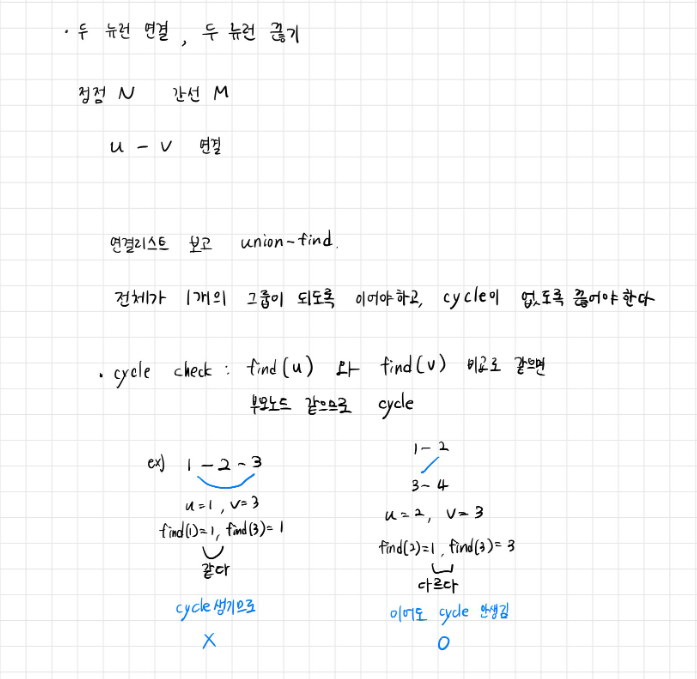 · 두 뉴런 연결, 두 뉴런 끊기
정점 N 간선 M
u - v 연결
연결리스트 보고 union-find.
전체가 1개의 그룹이 되도록 이어야하고, cycle이 없도록 끊어야한다
· cycle check : find(u) 와 find(v) 비교로 같으면
부모노드 같으므로 cycle
ex) 1 - 2 - 3
u=1, v=3
find(1)=1, find(3)=1
같다
cycle 생기므로
X
1 - 2
3 - 4
u=2, v=3
find(2)=1, find(3)=3
다르다
이어도 cycle 안생김
O